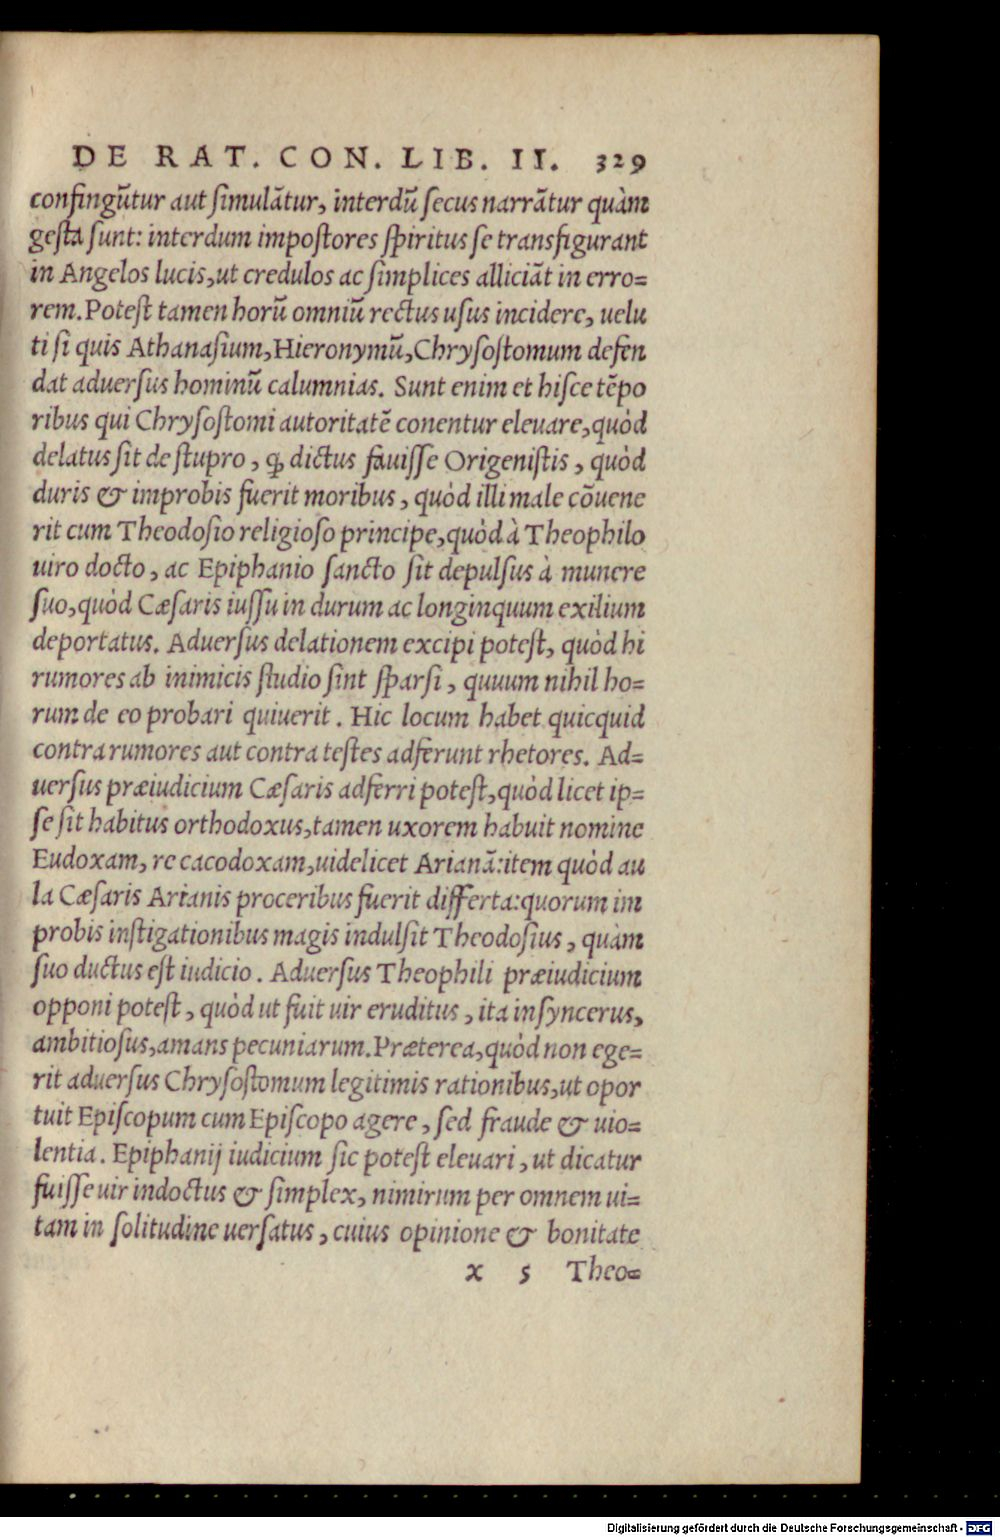 DE RAT. CON. LIB. II. 329
confingũtur aut ſimulãtur, interdũ ſecus narrãtur quàm
geſta ſunt: interdum impoſtores ſpiritus ſe transfigurant
in Angelos lucis, ut credulos ac ſimplices alliciãt in erro=
rem. Poteſt tamen horũ omniũ rectus uſus incidere, uelu
ti ſi quis Athanaſium, Hieronymũ, Chryſoſtomum defen
dat aduerſus hominũ calumnias. Sunt enim et hiſce tẽpo
ribus qui Chryſoſtomi autoritatẽ conentur eleuare, quòd
delatus ſit de ſtupro, ꝙ dictus fauiſſe Origeniſtis, quòd
duris & improbis fuerit moribus, quòd illi male cõuene
rit cum Theodoſio religioſo principe, quòd à Theophilo
uiro docto, ac Epiphanio ſancto ſit depulſus à munere
ſuo, quòd Cæſaris iuſſu in durum ac longinquum exilium
deportatus. Aduerſus delationem excipi poteſt, quòd hi
rumores ab inimicis ſtudio ſint ſparſi, quuum nihil ho=
rum de eo probari quiuerit. Hic locum habet quicquid
contra rumores aut contra teſtes adferunt rhetores. Ad=
uerſus præiudicium Cæſaris adferri poteſt, quòd licet ip=
ſe ſit habitus orthodoxus, tamen uxorem habuit nomine
Eudoxam, re cacodoxam, uidelicet Arianã: item quòd au
la Cæſaris Arianis proceribus fuerit differta: quorum im
probis inſtigationibus magis indulſit Theodoſius, quàm
ſuo ductus eſt iudicio. Aduerſus Theophili præiudicium
opponi poteſt, quòd ut fuit uir eruditus, ita inſyncerus,
ambitioſus, amans pecuniarum. Præterea, quòd non ege=
rit aduerſus Chryſoſtomum legitimis rationibus, ut opor
tuit Epiſcopum cum Epiſcopo agere, ſed fraude & uio=
lentia. Epiphanij iudicium ſic poteſt eleuari, ut dicatur
fuiſſe uir indoctus & ſimplex, nimirum per omnem ui=
tam in ſolitudine uerſatus, cuius opinione & bonitate
x 5 Theo=
Digitalisierung gefördert durch die Deutsche Forschungsgemeinschaft - DFG